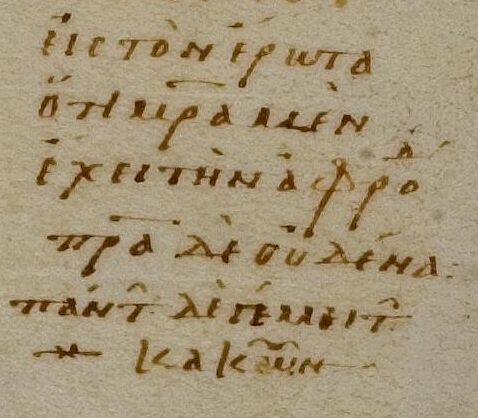 εἰς τὸν ἔρωτα
ὅτι μρ̅α μὲν
ἔχει τὴν ἀφρο^δ
πρ̅α δὲ οὐδένα
πάντ̑ δὲ
κακῶν